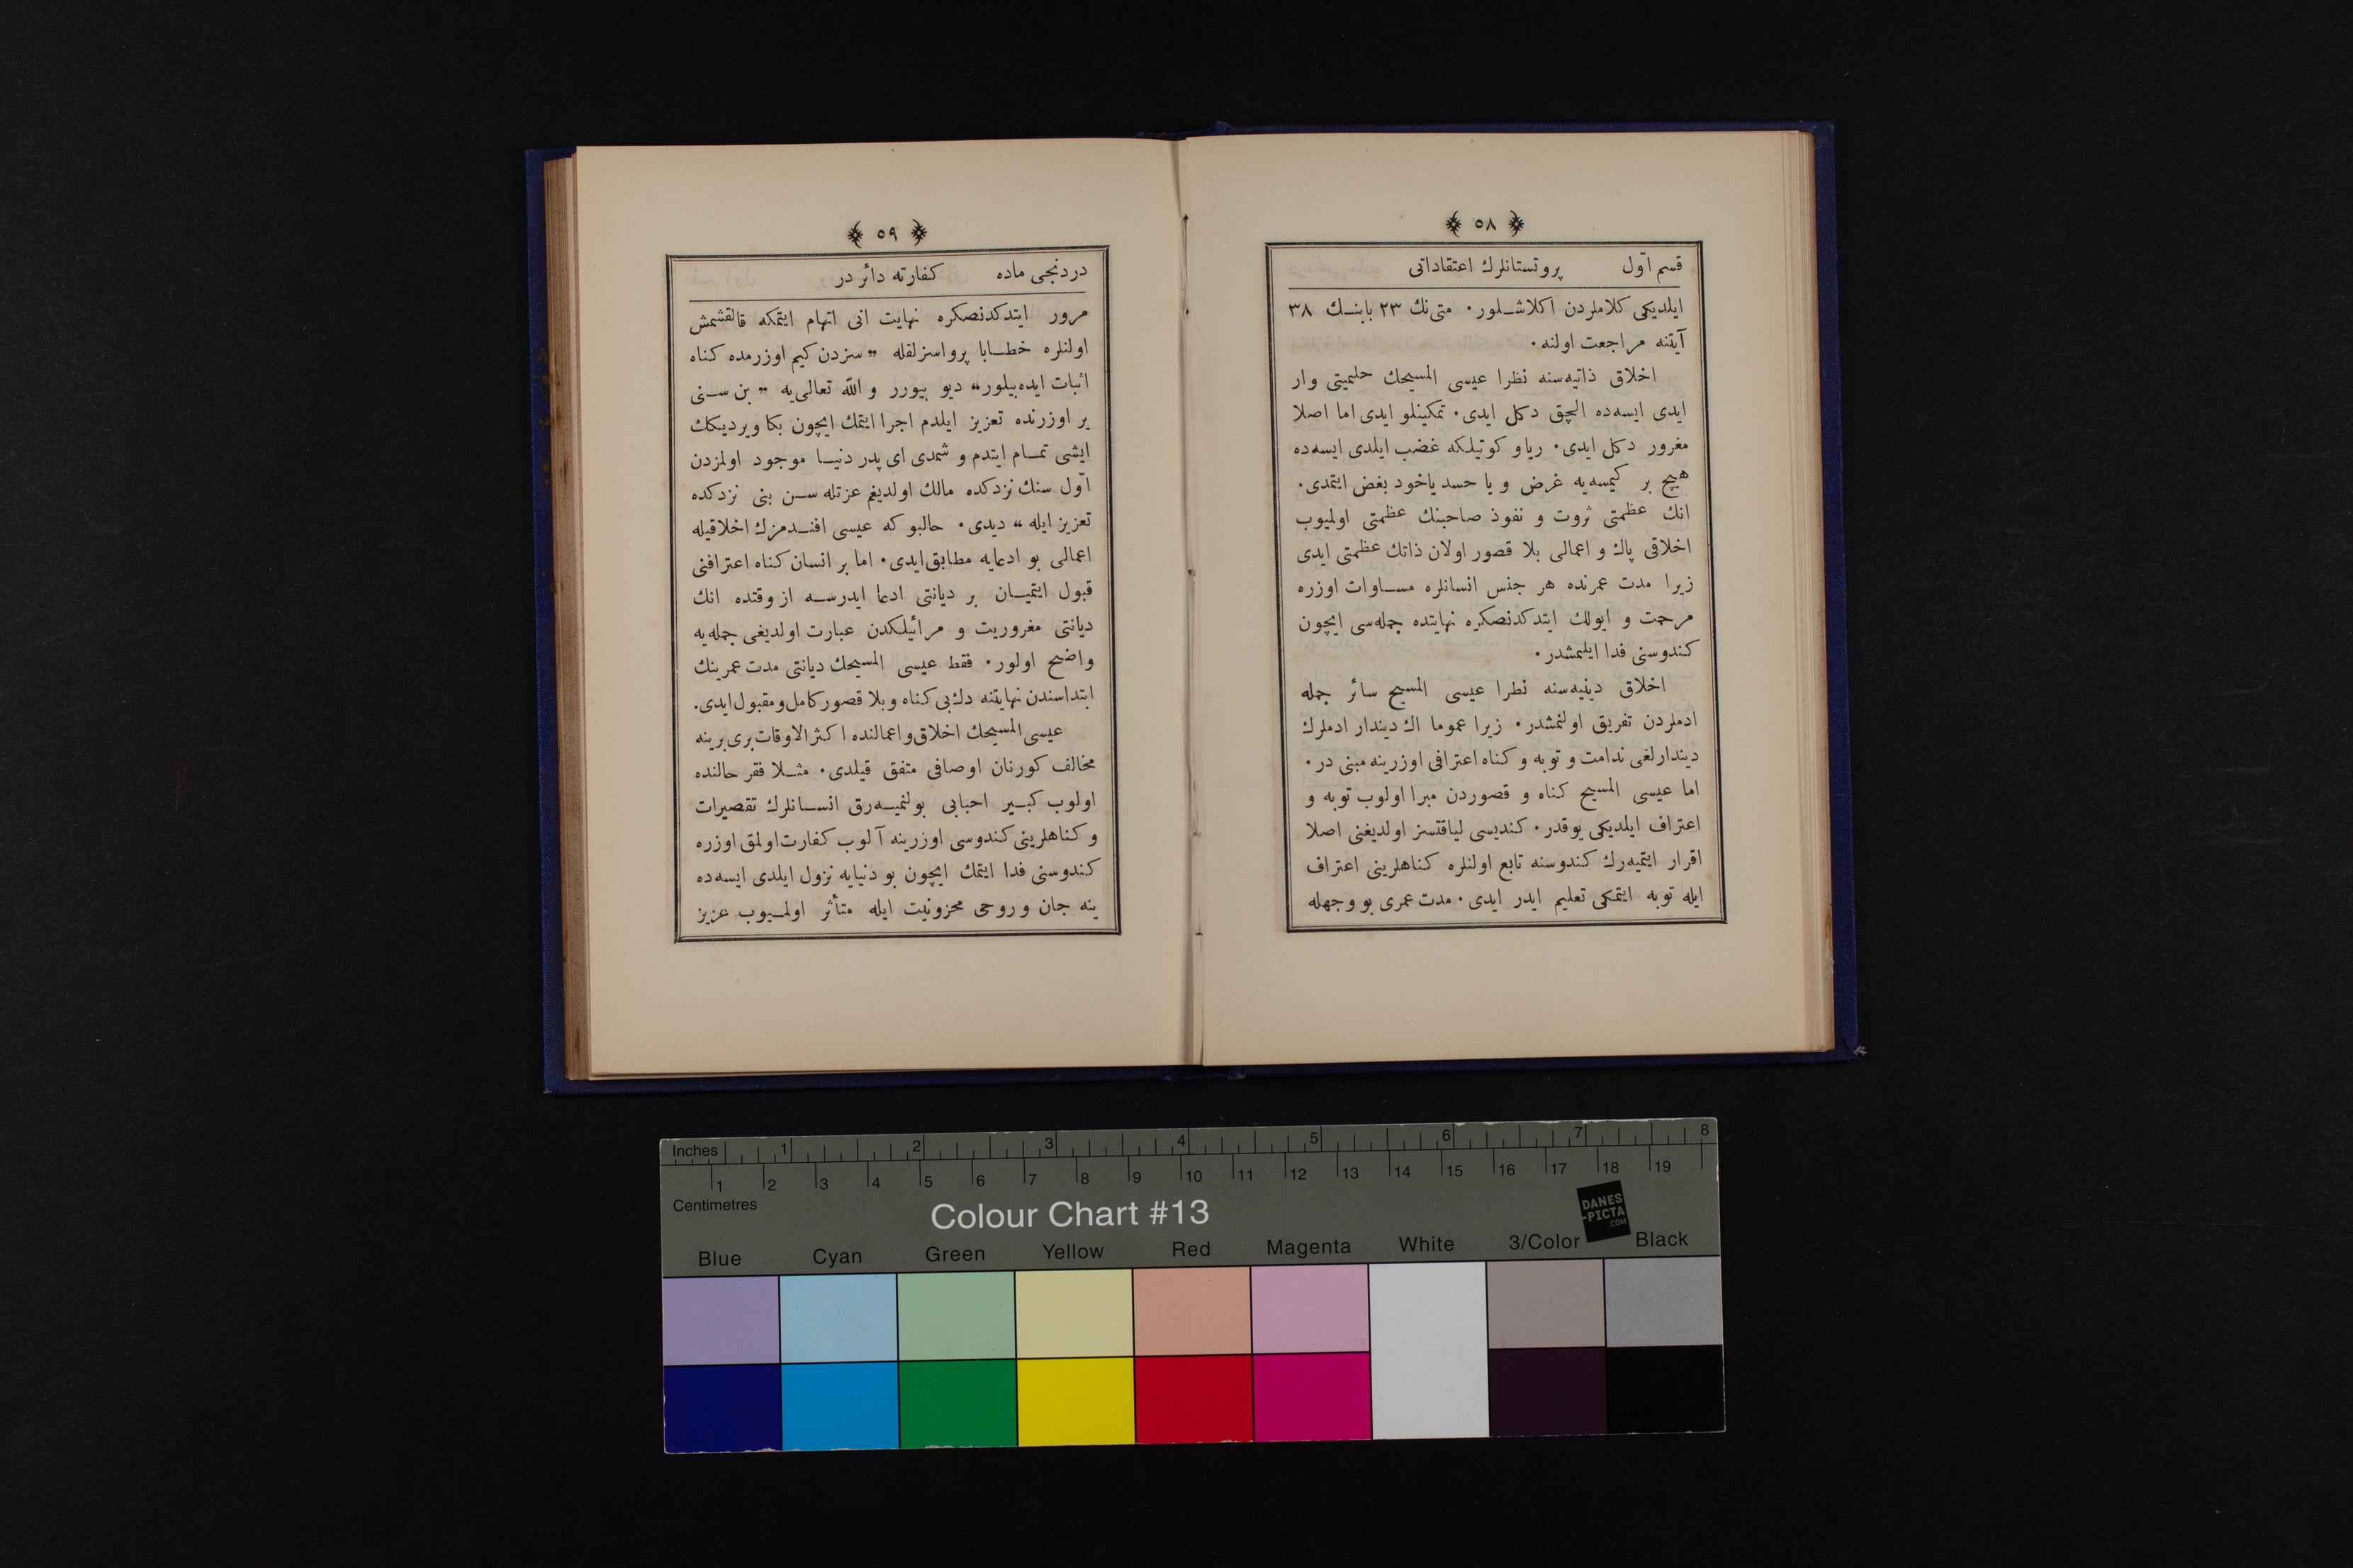 ﴿ ٥٨ ﴾
قسم اوّل پروتستانلرك اعتقاداتی
ایلدیكی كلاملردن اكلاشــلور٠ متی‌نك ٢٣ بابنــك ٣٨
آیتنه مراجعت اولنه٠
اخلاق ذاتیه‌سنه نظرا عیسی المسیحك حلیمیتی وار
ایدی ایسه‌ده الچق دكل ایدی٠ تمكینلو ایدی اما اصلا
مغرور دكل ایدی٠ ریا و كوتیلكه غضب ایلدی ایسه‌ده
هیچ بر كیمسه‌یه غرض و یا حسد یاخود بغض ایتمدی٠
انك عظمتی ثروت و نفوذ صاحبنك عظمتی اولمیوب
اخلاقی پاك و اعمالی بلا قصور اولان ذاتك عظمتی ایدی
زیرا مدت عمرنده هر جنس انسانلره مســاوات اوزره
مرحمت و ایولك ایتدكدنصكره نهایتده جمله‌سی ایچون
كندوسنی فدا ایلمشدر٠
اخلاق دینیه‌سنه نظرا عیسی المسیح سائر جمله
ادملردن تفریق اولنمشدر٠ زیرا عموما اك دیندار ادملرك
دیندارلغی ندامت و توبه و كناه اعترافی اوزرینه مبنی در٠
اما عیسی المسیح كناه و قصوردن مبرا اولوب توبه و
اعتراف ایلدیكی یوقدر٠ كندیسی لیاقتسز اولدیغنی اصلا
اقرار ایتمیه‌رك كندوسنه تابع اولنلره كناهلرینی اعتراف
ایله توبه ایتمكی تعلیم ایدر ایدی٠ مدت عمری بو وجهله
﴿ ٥٩ ﴾
دردنجی ماده كفارته دائر در
مرور ایتدكدنصكره نهایت انی اتهام ایتمكه قالقشمش
اولنلره خطــابا پرواسزلقله ” سزدن كیم اوزرمده كناه
اثبات ایده‌بیلور“ دیو بیورر و الله تعالی‌یه ” بن ســنی
یر اوزرنده تعزیز ایلدم اجرا ایتمك ایچون بكا ویردیكك
ایشی تمــام ایتدم و شمدی ای پدر دنیــا موجود اولمزدن
اوّل سنك نزدكده مالك اولدیغم عزتله ســن بنی نزدكده
تعزیز ایله “ دیدی٠ حالبو كه عیسی افنــدمزك اخلاقیله
اعمالی بو ادعایه مطابق ایدی٠ اما بر انسان كناه اعترافنی
قبول ایتمیــان بر دیانتی ادعا ایدرســه از وقتده انك
دیانتی مغروریت و مرائیلكدن عبارت اولدیغی جمله‌یه
واضح اولور٠ فقط عیسی المسیحك دیانتی مدت عمرینك
ابتداسندن نهایتنه دك بی كناه و بلا قصور كامل و مقبول ایدی.
عیسی المسیحك اخلاق و اعمالنده اكثر الاوقات بری برینه
مخالف كورنان اوصافی متفق قیلدی٠ مثــلا فقر حالنده
اولوب كبــیر احبابی بولنمیــه‌رق انســانلرك تقصیرات
و كناهلرینی كندوسی اوزرینه آلوب كفارت اولمق اوزره
كندوسنی فدا ایتمك ایچون بو دنیایه نزول ایلدی ایسه‌ده
ینه جان و روحی محزونیت ایله متأثر اولمــیوب عزیز
Inches 1 2 3 4 5 6 7 8
1 2 3 4 5 6 7 8 9 10 11 12 13 14 15 16 17 18 19
Centimetres
Colour Chart #13
DANES
-PICTA
.COM
Blue Cyan Green Yellow Red Magenta White 3/Color Black